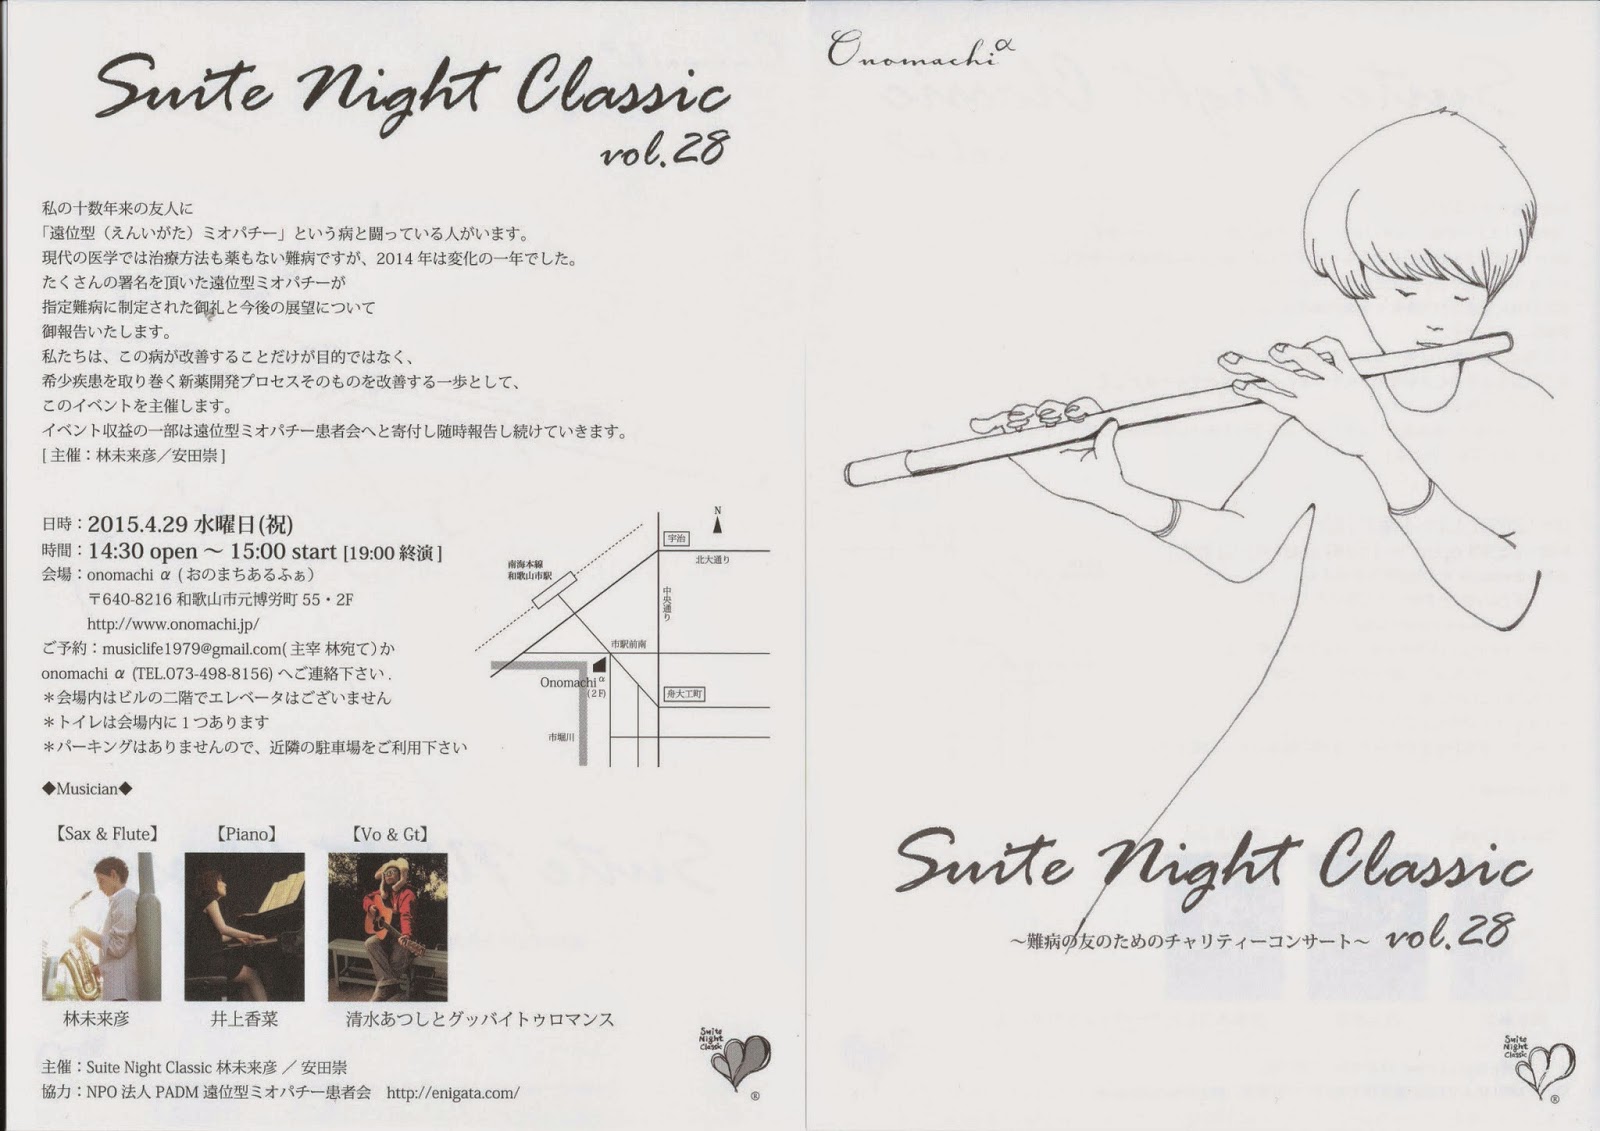 Suite Night Classic
vol.28
私の十数年来の友人に
「遠位型（えんいがた）ミオパチー」という病と闘っている人がいます。
現代の医学では治療方法も薬もない難病ですが、2014 年は変化の一年でした。
たくさんの署名を頂いた遠位型ミオパチーが
指定難病に制定された御礼と今後の展望について
御報告いたします。
私たちは、この病が改善することだけが目的ではなく、
希少疾患を取り巻く新薬開発プロセスそのものを改善する一歩として、
このイベントを主催します。
イベント収益の一部は遠位型ミオパチー患者会へと寄付し随時報告し続けていきます。
[ 主催：林未来彦／安田崇 ]
日時：2015.4.29 水曜日(祝)
時間：14:30 open 〜 15:00 start [19:00 終演 ]
会場：onomachi α ( おのまちあるふぁ）
〒640-8216 和歌山市元博労町 55・2F
http://www.onomachi.jp/
ご予約：musiclife1979@gmail.com( 主宰 林宛て) か
onomachi α (TEL.073-498-8156) へご連絡下さい .
＊会場内はビルの二階でエレベータはございません
＊トイレは会場内に 1 つあります
＊パーキングはありませんので、近隣の駐車場をご利用下さい
N
宇治
北大通り
南海本線
和歌山市駅
中央通り
市駅前南
Onomachi α
(2F)
舟大工町
市堀川
◆Musician◆
【Sax & Flute】
【Piano】
【Vo & Gt】
林未来彦
井上香菜
清水あつしとグッバイトゥロマンス
主催：Suite Night Classic 林未来彦 ／ 安田崇
協力：NPO 法人 PADM 遠位型ミオパチー患者会　http://enigata.com/
Suite
Night
Classic
®
Onomachi α
Suite Night Classic
〜難病の友のためのチャリティーコンサート〜 vol.28
Suite
Night
Classic
®